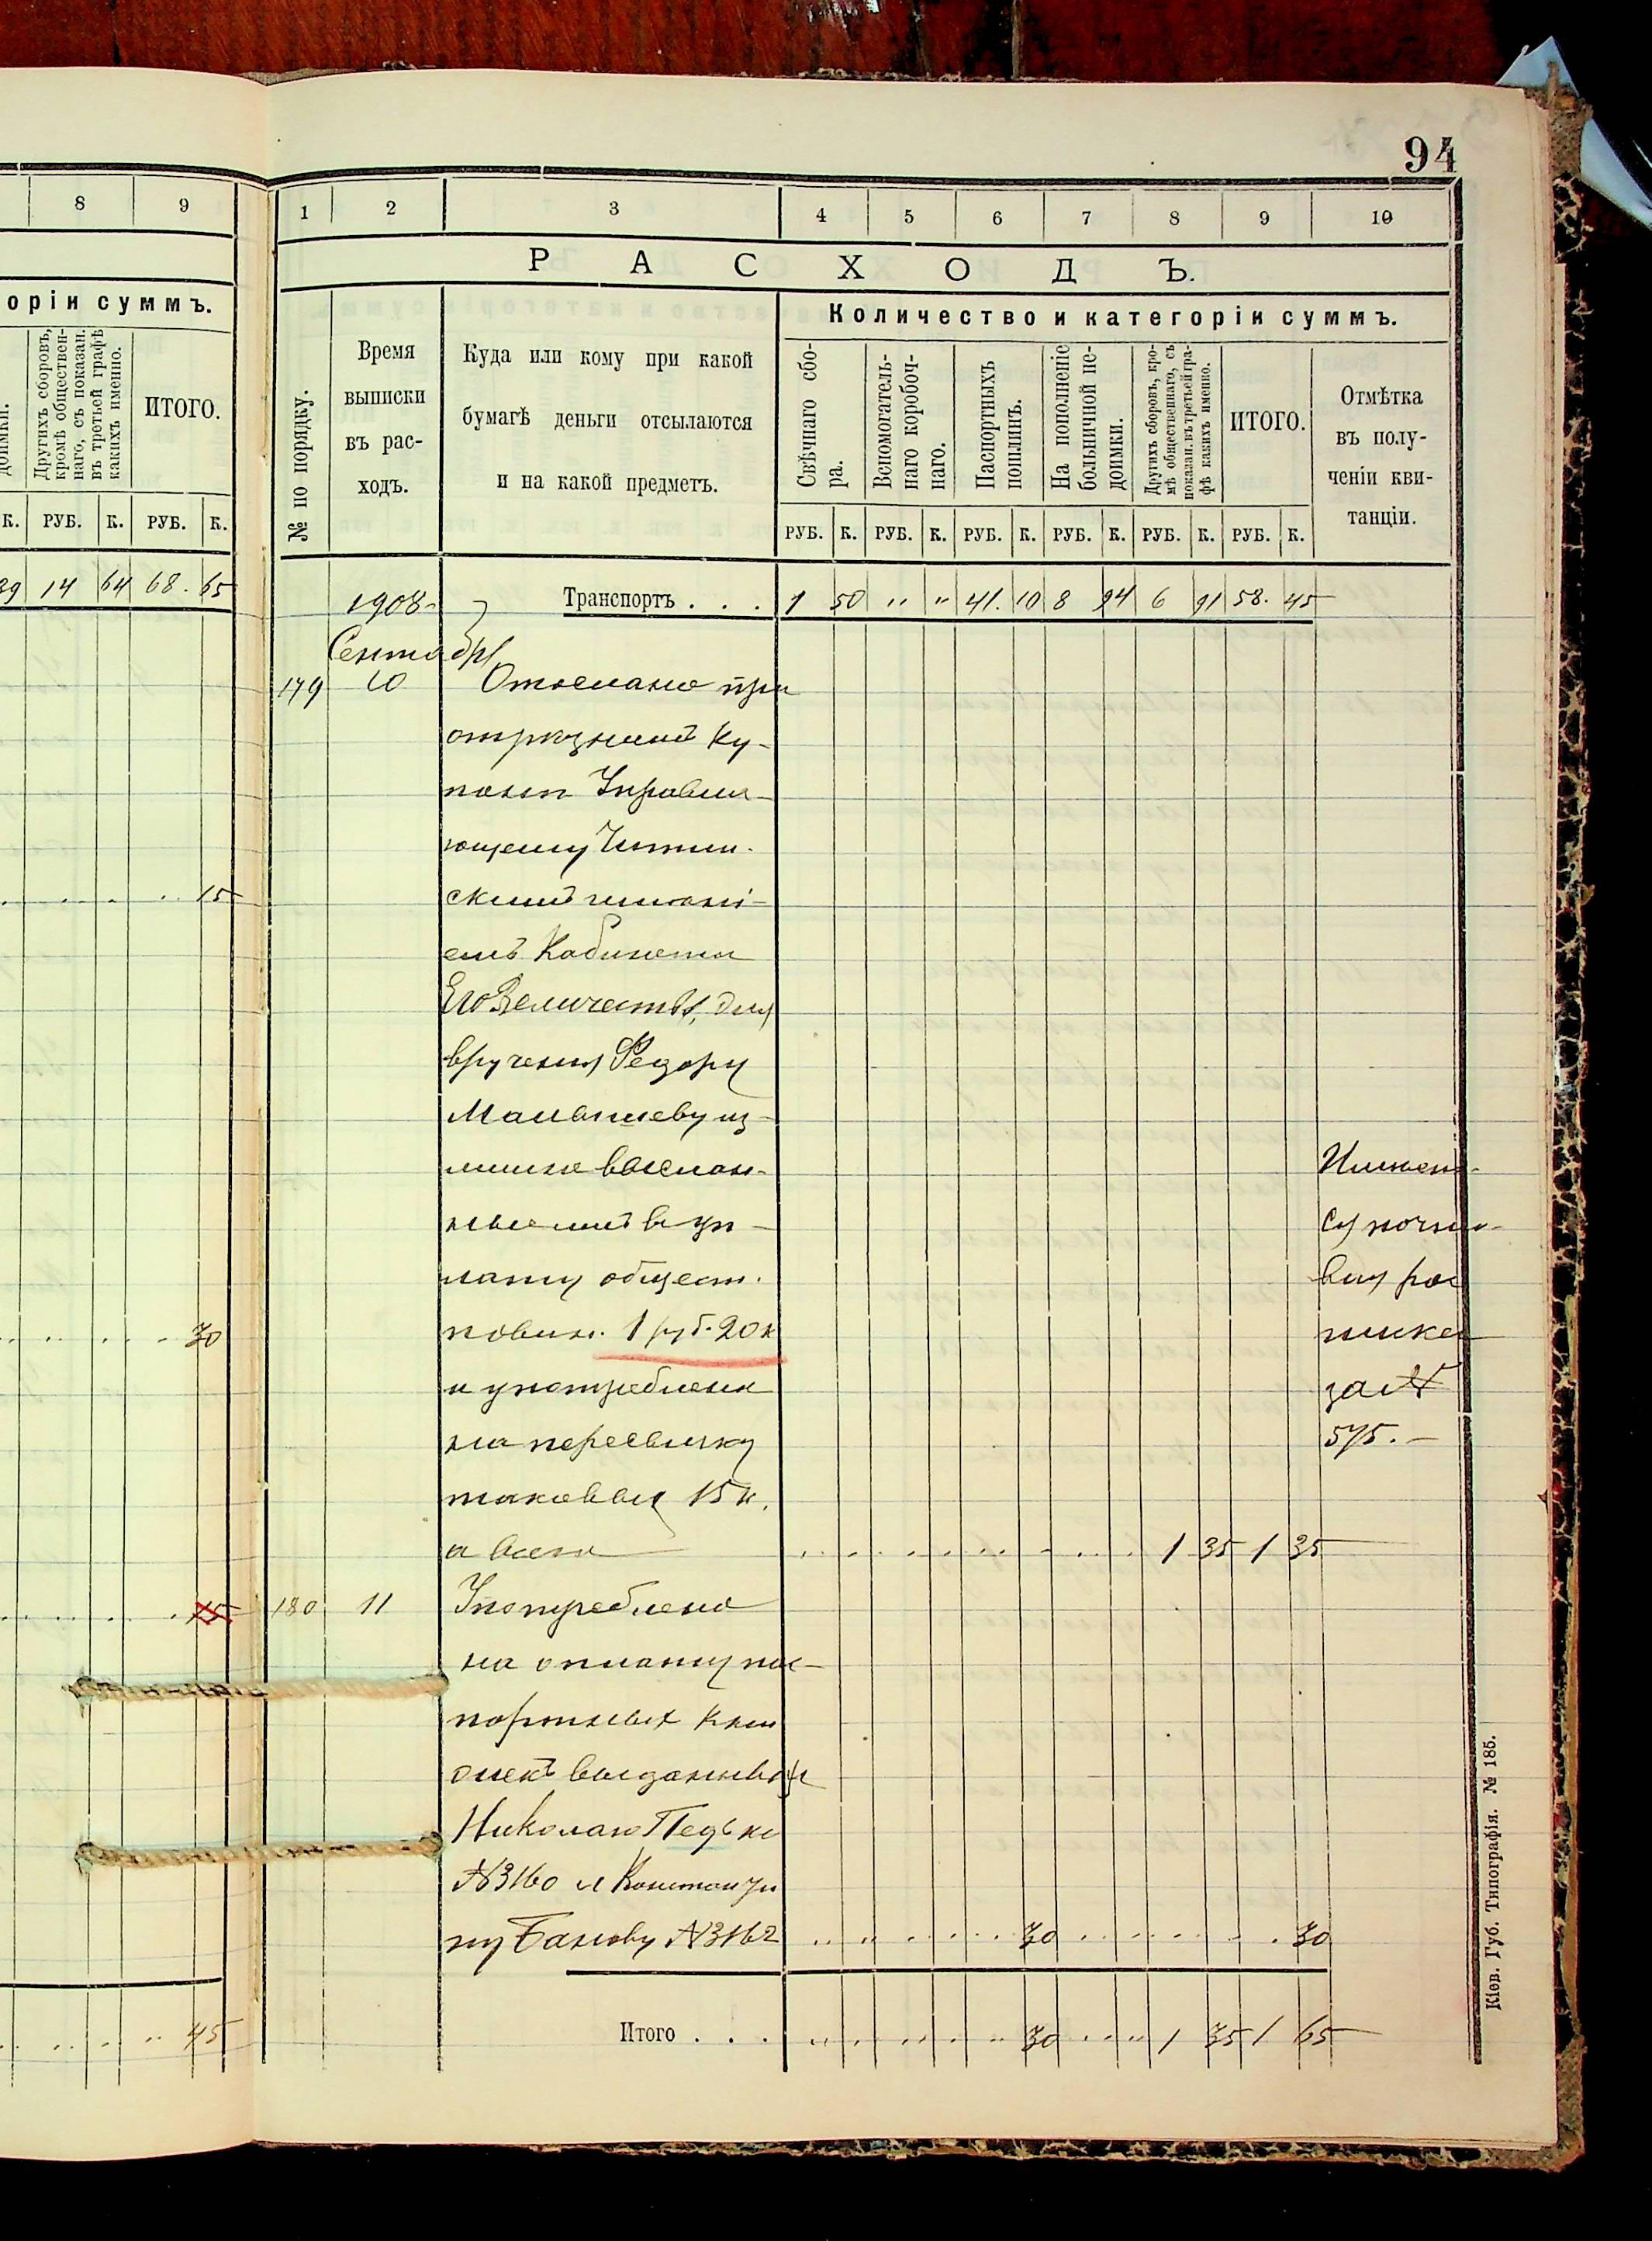 94
8 9
оріи суммъ.
доимки.
Другихъ сборовъ,
кромѣ обществен-
наго, съ показан.
въ третьей графѣ
какихъ именно.
ИТОГО.
К. РУБ. К. РУБ. К.
39 14 64 68. 65
15
30
15
45
1 2 3 4 5 6 7 8 9 10
РАСХОДЪ.
№ по порядку.
Время
выписки
въ рас-
ходъ.
Куда или кому при какой
бумагѣ деньги отсылаются
и на какой предметъ.
Количество и категоріи суммъ.
Свѣчнаго сбо-
ра.
Вспомогатель-
наго коробоч-
наго.
Паспортныхъ
пошлинъ.
На пополненіе
больничной не-
доимки.
Другихъ сборовъ, кро-
мѣ общественнаго, съ
показан. въ третьей гра-
фѣ какихъ именно.
ИТОГО.
Отмѣтка
въ полу-
ченіи кви-
танціи.
РУБ. К. РУБ. К. РУБ. К. РУБ. К. РУБ. К. РУБ. К.
1908 Транспортъ . . . 1 50 " " 41. 10 8 94 6 91 58. 45
Сентября
179 10 Отослано при
отрѣзномъ ку-
понѣ Управля-
ющему Читин-
скимъ имѣні-
емъ Кабинета
Его Величества, для
врученія Федору
Малышеву из-
лишне выслан-
ные имъ в уп-
лату общест.
повин. 1 руб. 20 к
и употреблено
на пересылку
таковых 15 к.
а всего 1 35 1 35
Имѣет-
ся почто-
вая рос
писка
за №
575. —
180 11 Употреблено
на оплату пас-
портных кни
жекъ выданных
Николаю Педьке
№ 3160 и Константи
ну Банову № 3162 30 30
Итого . . . 30 1 35 1 65
Кіев. Губ. Типографія. № 185.